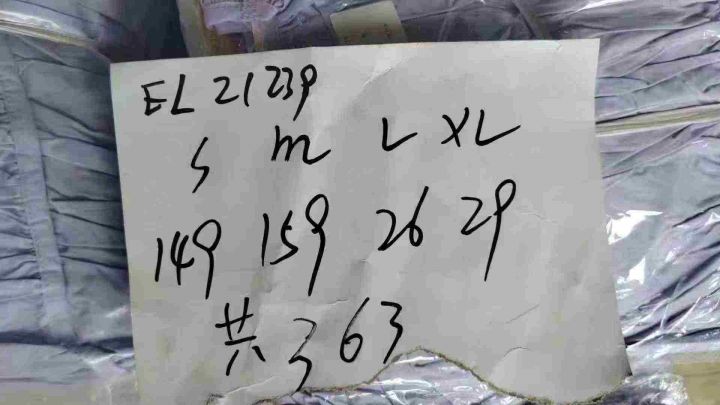 EL 21239
S m L XL
149 159 26 29
共363